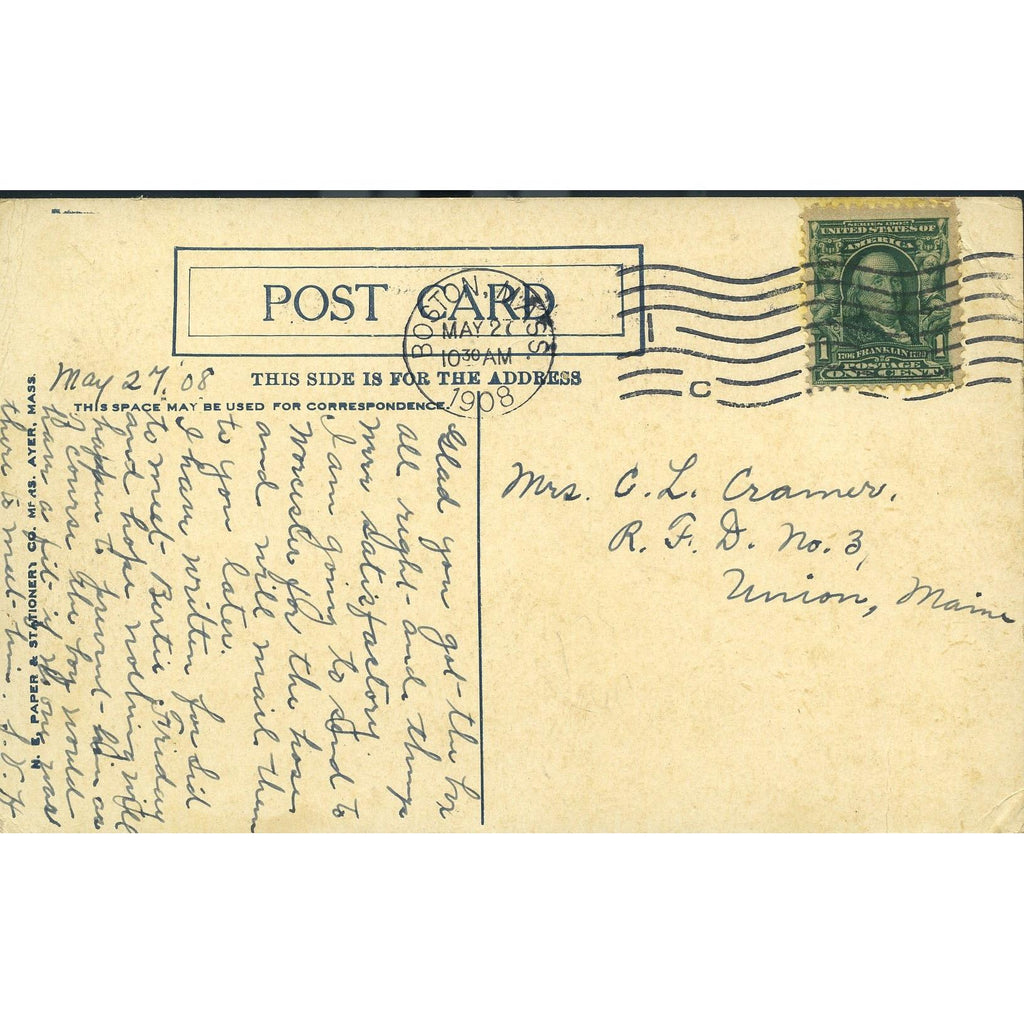 SERIES 1902
UNITED STATES OF
AMERICA
1 1706 FRANKLIN 1790 1
POSTAGE
ONE CENT
POST CARD
BOSTON, MASS.
MAY 27
10 30 AM
1908
1
C
THIS SIDE IS FOR THE ADDRESS
May 27, '08
THIS SPACE MAY BE USED FOR CORRESPONDENCE.
Glad you got the box
all right - and things
were satisfactory
I am going to send to
Worcester for the hoses
and will mail them
to you later.
I have written for Sid
to meet Bertie Friday
and hope nothing will
happen to prevent him as
of course the boy would
have a fit if no one was
there to meet him. S. V. H
Mrs. C. L. Cramer,
R. F. D. No. 3,
Union, Maine
N. E. PAPER & STATIONERY CO. MFRS. AYER, MASS.